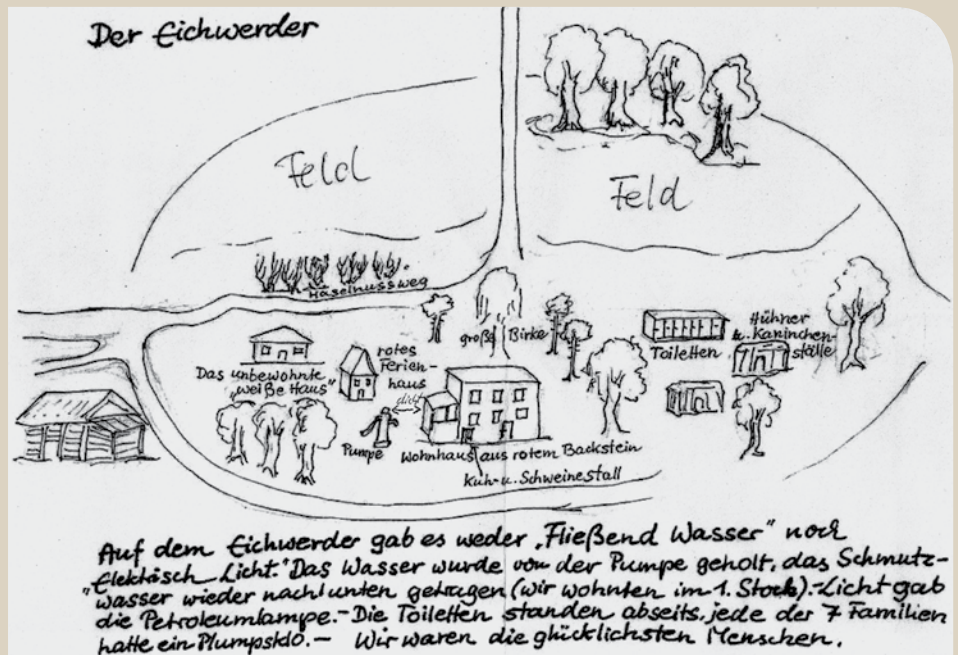 Der Eichwerder
Feld
Feld
Haselnussweg
große Birke
Hühner
u. Kaninchen-
ställe
Toiletten
rotes
Ferien-
haus
Das unbewohnte
"weiße Haus"
Pumpe
Wohnhaus aus rotem Backstein
Kuh- u. Schweinestall
Auf dem Eichwerder gab es weder „Fließend Wasser" noch
"Elektrisch Licht." Das Wasser wurde von der Pumpe geholt, das Schmutz-
wasser wieder nach unten getragen (wir wohnten im 1. Stock).- Licht gab
die Petroleumlampe.- Die Toiletten standen abseits, jede der 7 Familien
hatte ein Plumpsklo. — Wir waren die glücklichsten Menschen.